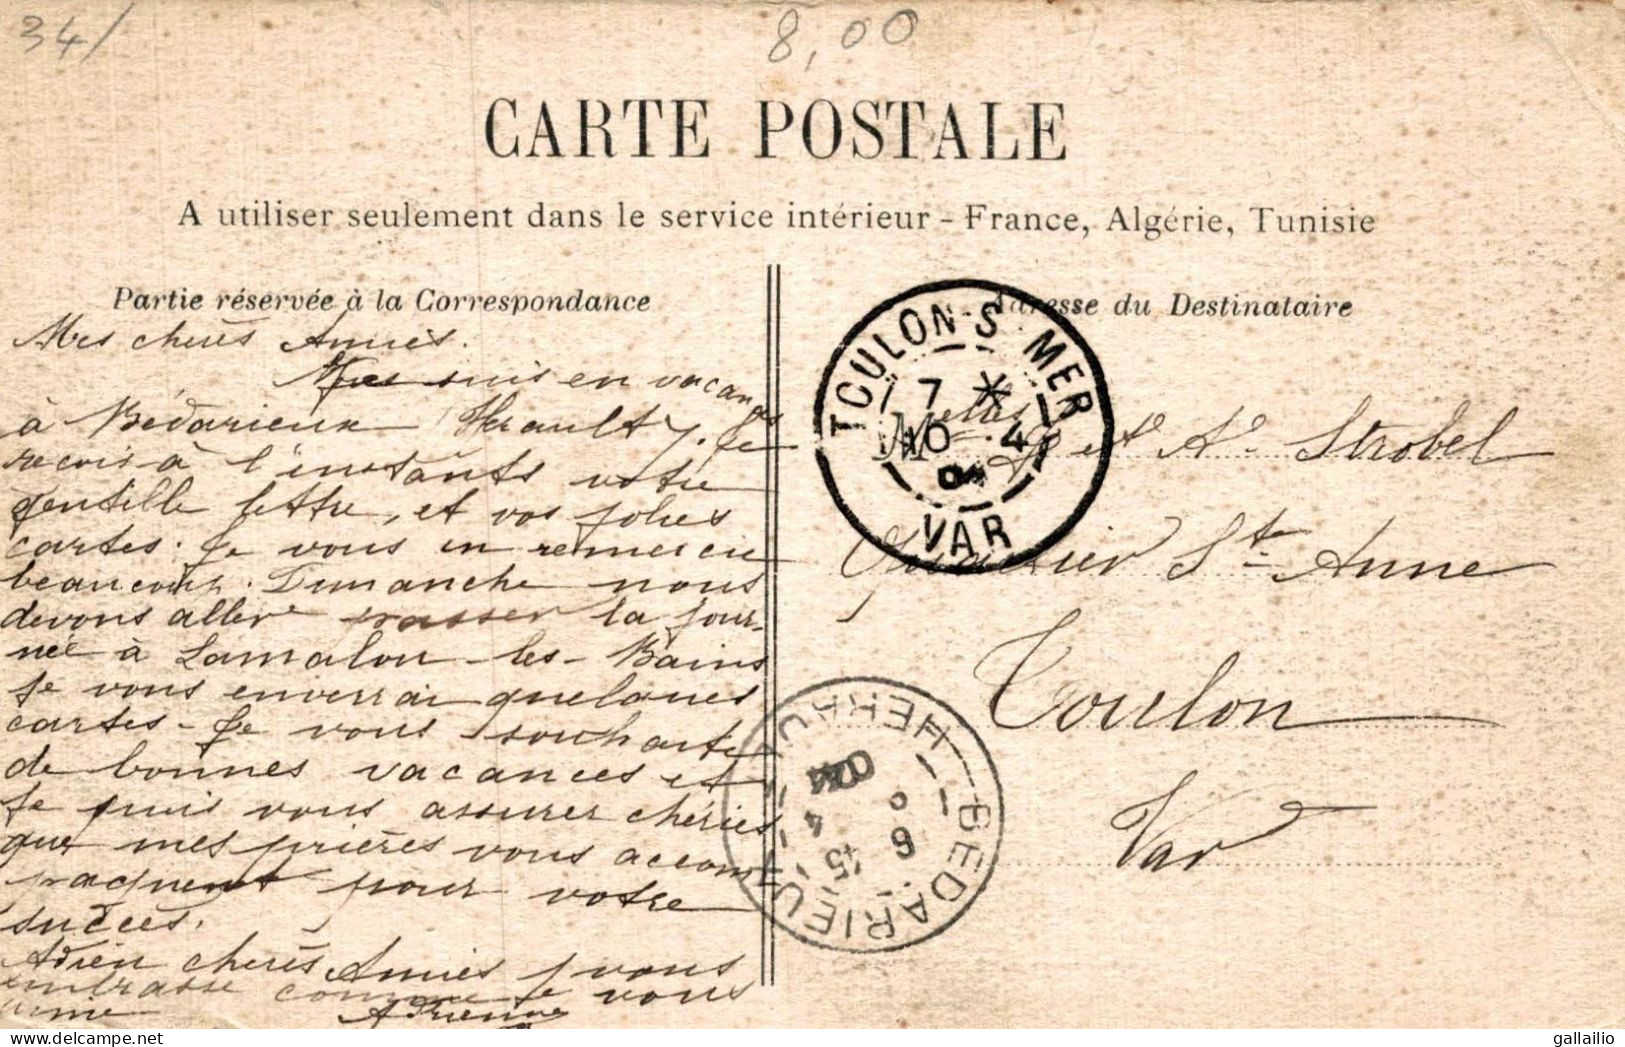 34/
8,00
CARTE POSTALE
A utiliser seulement dans le service intérieur - France, Algérie, Tunisie
Partie réservée à la Correspondance
Mes cherès Amiès.
suis en vacances
à Bédarieux Herault. Je
recois à l'instants votre
gentille lettre, et vos jolies
cartes. Je vous en remercie
beaucoup. Dimanche nous
devons aller passer la jour-
neé à Lamalou-les-Bains
Je vous enverrai quelques
cartes - Je vous souhaite
de bonnes vacances et
Je puis vous assurer chéries
que mes prières vous accom
pagnent pour votre
succès.
Adieu cherès Amies je vous
embrasse comme je vous
aime Adrienne
Adresse du Destinataire
Melles J. et A. Strobel
Quartier St. Anne
Toulon
Var
TOULON-S-MER
7 *
10 4
VAR
BEDARIEUX
HERAULT
6
15 4
04
gallailio